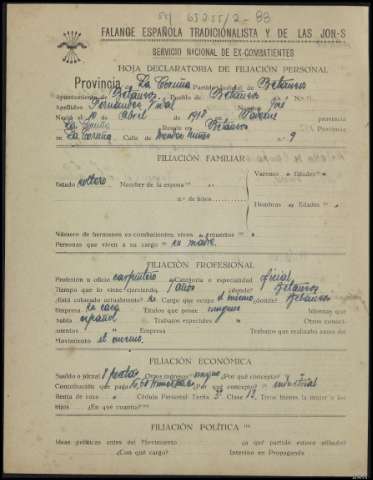 54 63255/2-88
FALANGE ESPAÑOLA TRADICIONALISTA Y DE LAS JON-S
SERVICIO NACIONAL DE EX-COMBATIENTES
HOJA DECLARATORIA DE FILIACIÓN PERSONAL
Provincia La Coruña Partido judicial de Betanzos
Ayuntamiento de Betanzos Pueblo de Betanzos N.º
Apellidos Fernández Vidal Nombre José
Nació el 10 de Abril de 1918
La Coruña Reside en Betanzos Provincia
en La Coruña Calle de Méndez Núñez n.º 9
FILIACIÓN FAMILIAR
Estado soltero Nombre de la esposa Varones Edades
n.º de hijos
Hembras Edades
Número de hermanos ex-combatientes vivos muertos
Personas que viven a su cargo su madre
FILIACIÓN PROFESIONAL
Profesión u oficio carpintero Categoría o especialidad oficial
Tiempo que lo viene ejerciendo 7 años ¿dónde? Betanzos
¿Está colocado actualmente? Cargo que ocupa el mismo ¿dónde? Betanzos
Empresa su casa Títulos que posee ninguno Idiomas que
habla español Trabajos especiales Otros conoci-
mientos Empresa Trabajos que realizaba antes del
Movimiento el mismo
FILIACIÓN ECONÓMICA
Sueldo o jornal 8 pesetas Otros ingresos ninguno ¿Por qué concepto?
Contribución que paga ¿Por qué concepto? industrial
Renta de casa Cédula Personal Tarifa 3ª Clase 13 Tiene bienes la mujer o los
hijos ¿En qué cuantía?
FILIACIÓN POLÍTICA
Ideas políticas antes del Movimiento ¿a qué partido estuvo afiliado?
¿Con qué cargo? Intervino en Propaganda